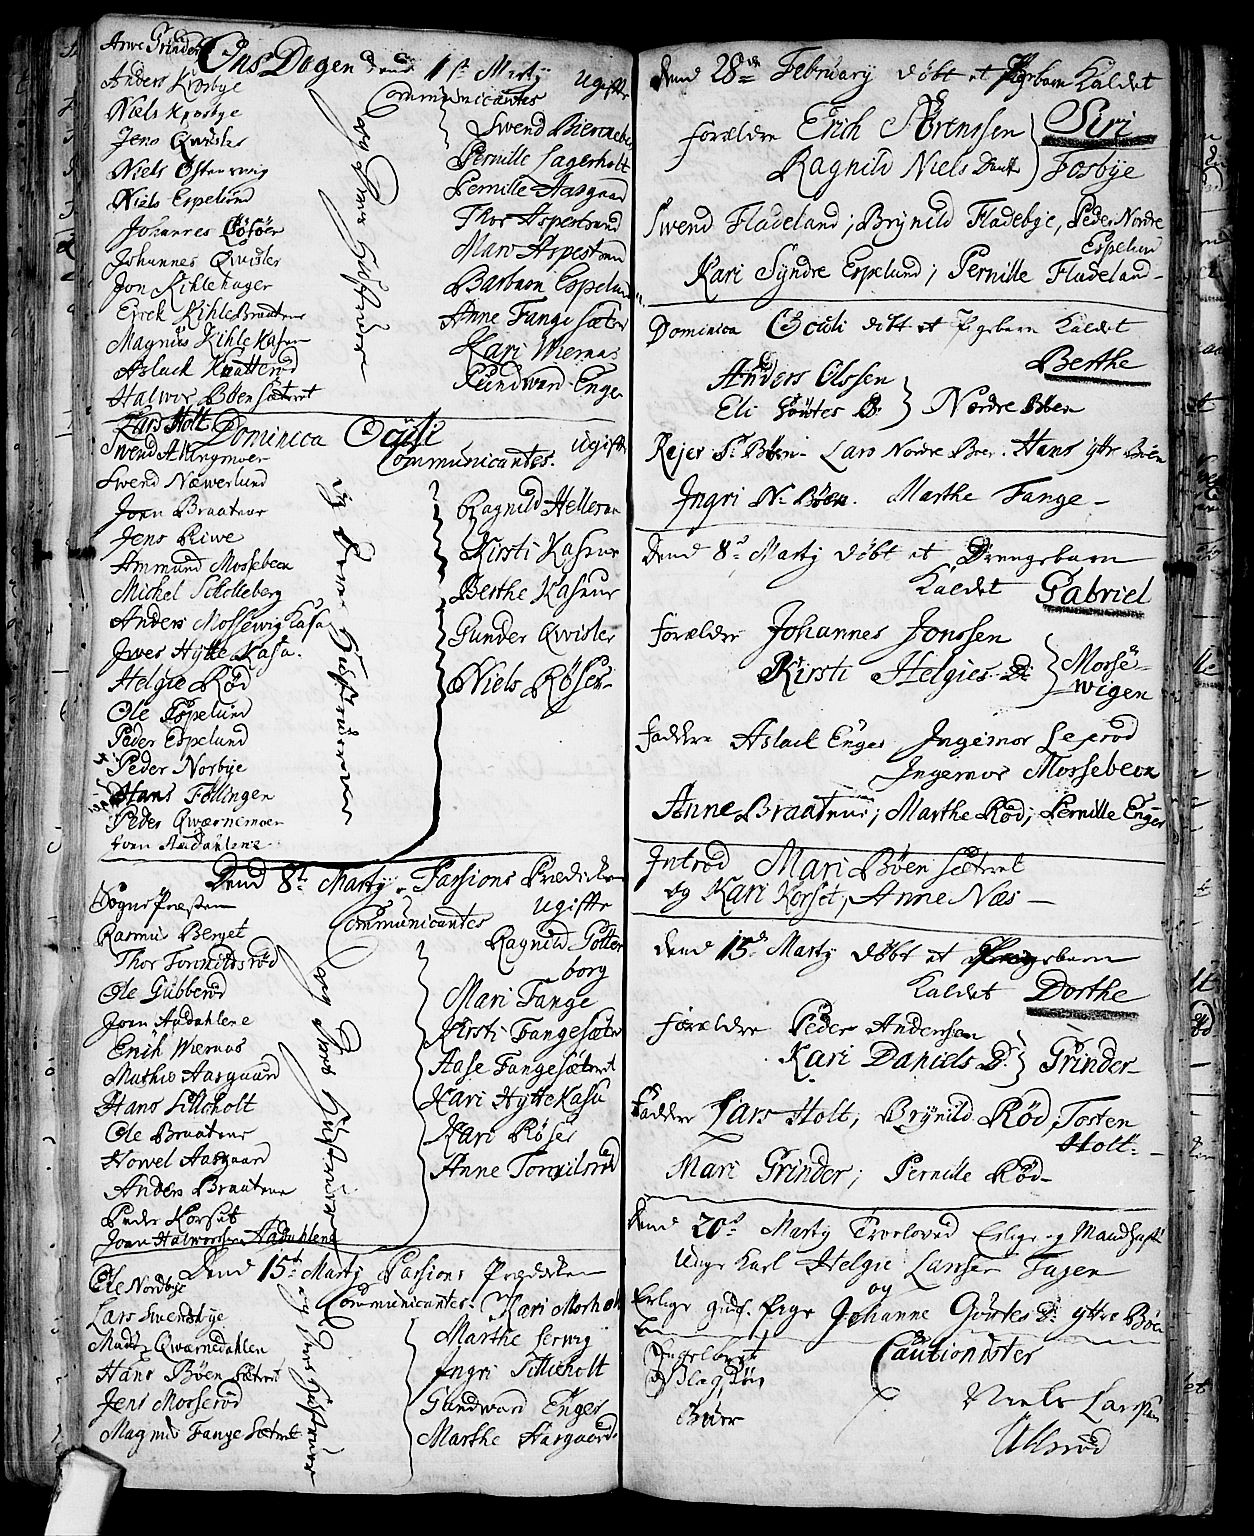 Arne Grinder
Ons Dagen dend 1ste Marty
Communicantes
ugifte
Anders Krosbye
Niels Krosbye
Jens Qvisler
Niels Ostenwiig
Niels Espelund
Johannes Røsøer
Johannes Qvisler
Jon Kihlehager
Erick Kihle Braatene
Magnus Kihle Kasen
Aslack Knatterød
Halwor Bøen Sæteret
og deres Hustruer
Swend Bieroche
Pernille Lagerholt
Pernille Aasgaard
Thor Aspestrand
Mari Aspestrand
Barbaro Espelund
Anne Fange Sæter
Kari Wiernæs
Gundword Enger
Lars Holt
Dominica Oculi
Communicantes.
ugifte
Swend Alingmoer
Swend Næwerlund
Joen Braatene
Jens Riwe
Ammund Mossebeen
Michel Scholleberg
Anders Mossewig Kasa
Iwer Hytte Kasa.
Helgie Rød
Ole Espelund
Peder Espelund
Peder Norbye
Hans Føllingen
Peder Qwærnemoen
Joen Aadahlene
og deres Hustruer
Ragnild Helleren
Kirsti Kasene
Berthe Kasene
Gunder Qwisler
Niels Røser
Dend 8te Marty. Passions Prædicken
Communicantes
ugifte
Sogne Præsten
Rasmus Berget
Thor Tormildsrød
Ole Gubberød
Joen Aadahlene
Erich Wiernæs
Mathis Aasgaard
Hans Lilleholt
Ole Braatene
Howel Aasgaard
Anders Braatene
Peder Korset
Joen Halworssen Aadahlene
og deres Hustruer
Ragnild Gotter
borg
Mari Fange
Kirsti Fangesæter
Aase Fangesæteret
Kari Hytte Kasa
Kari Røser
Anne Tormilsrød
Dend 15de Marty Passions Prædicken
Communicantes.
Ole Nordbye
Lars Swensbye
Mads Qwarnedahlen
Hans Bøen Sæteret
Jens Mosserød
Magnus Fange Sæteret
og deres Hustruer
Kari Morholt
Marthe Lerwig
Ingri Lilleholt
Gundword Enger
Marthe Aasgaard
Dend 28de February døbt et Pigebarn Kaldet
Siri
Forældre Erich Sørenssen
Ragnild Niels Dautter
Fosbye
Swend Fladeland; Brynild Fladebye, Peder Nordre
Espelund
Kari Syndre Espelund; Pernille Fladeland
Dominica Oculi døbt et Pigebarn Kaldet
Berthe
Anders Olssen
Eli Goutes D.
Nordre Bøen
Rejer S. Bøen. Lars Nordre Bøen. Hans yttre Bøen
Ingri N. Bøen. Marthe Fange
Dend 8de Marty døbt et Drengebarn
Kaldet Gabriel
Forældre Johannes Jonssen
Kirsti Helgies D.
Mosse-
wigen
Faddere Aslack Enger Ingemor Lexerød
Ingemor Mossebeen
Anne Braatene; Marthe Rød; Pernille Enger
Introd Mari Bøen Sæteret
og Kari Korset, Anne Næs
Dend 15de Marty døbt et Pigebarn
Kaldet Dorthe
Forældre Peder Anderssen
Kari Daniels D.
Grinder
Faddere Lars Holt; Brynild Rød, Tosten
Holt
Mari Grinder; Pernille Rød
Dend 20de Marty Trolowed Erlige og Mandhaft
Unge Karl Helgie Lansen Fajen
og
Erlige gudf. Pige Johanne Goutes D. yttre Bøen
Cautionister
Ingelbret
Niels Larssen
Ullerød